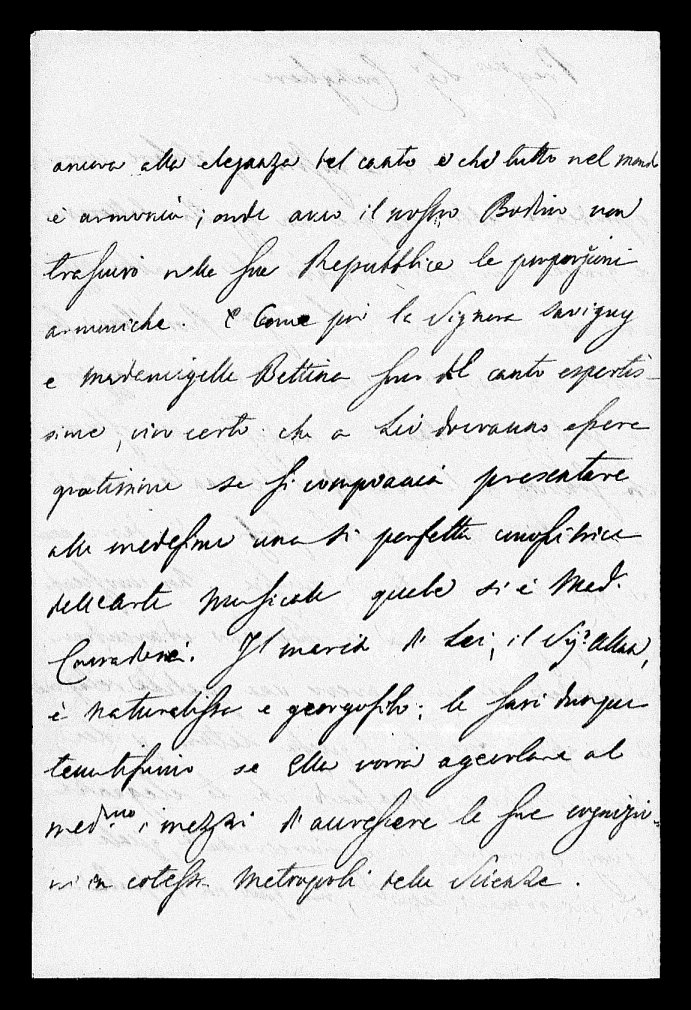 ancora alla eleganza del canto e che tutto nel mondo
è armonia; onde anco il nostro Bodino non
trascurò nelle sue Repubblice le proporzioni
armoniche. E Come poi la Signora Savigny
e Madamigella Bettina sono del canto espertis-
sime, vivo certo che a Lei dovranno essere
gratissime se si compiaccia presentare
alle medesime una sì perfetta
dell'Arte Musicale quale si è Mad.
Il marito di Lei, il Sig.r Allan,
è naturalista e georgofilo; le sarò dunque
tenutissimo se Ella vorrà agevolare al
med.mo i mezzi di accrescere le sue cognizio-
ni in cotesta Metropoli delle Scienze.